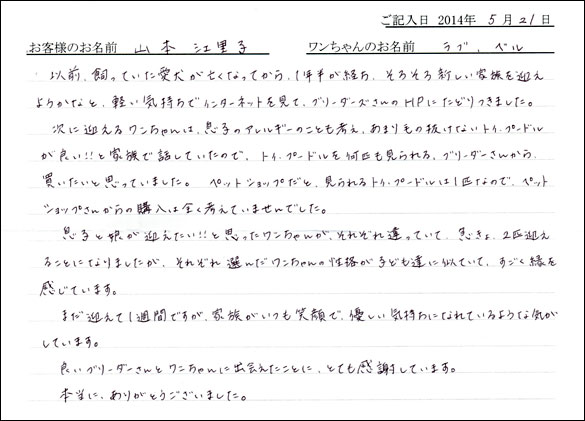 ご記入日 2014年 5月21日
お客様のお名前 山本 江里子 ワンちゃんのお名前 ラブ、ベル
以前、飼っていた愛犬が亡くなってから、1年半が経ち、そろそろ新しい家族を迎え
ようかなと、軽い気持ちでインターネットを見て、ブリーダーズさんのHPにたどりつきました。
次に迎えるワンちゃんは、息子のアレルギーのことも考え、あまり毛の抜けないトイ・プードル
が良い!!と家族で話していたので、トイ・プードルを何匹も見られる、ブリーダーさんから、
買いたいと思っていました。 ペットショップだと、見られるトイ・プードルは1匹なので、ペット
ショップさんからの購入は全く考えていませんでした。
息子と娘が迎えたい!!と思ったワンちゃんが、それぞれ違っていて、急きょ、2匹迎え
ることになりましたが、それぞれ選んだワンちゃんの性格が子ども達に似ていて、すごく縁を
感じています。
まだ迎えて1週間ですが、家族がいつも笑顔で、優しい気持ちになれているような気が
しています。
良いブリーダーさんとワンちゃんに出会えたことに、とても感謝しています。
本当に、ありがとうございました。